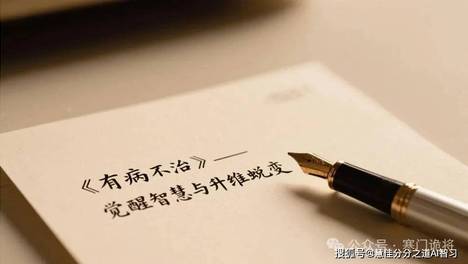 《有病不治》——
觉醒智慧与升维蜕变
公众号·寒门诡将
搜狐号@慧佳分分之道AI智习